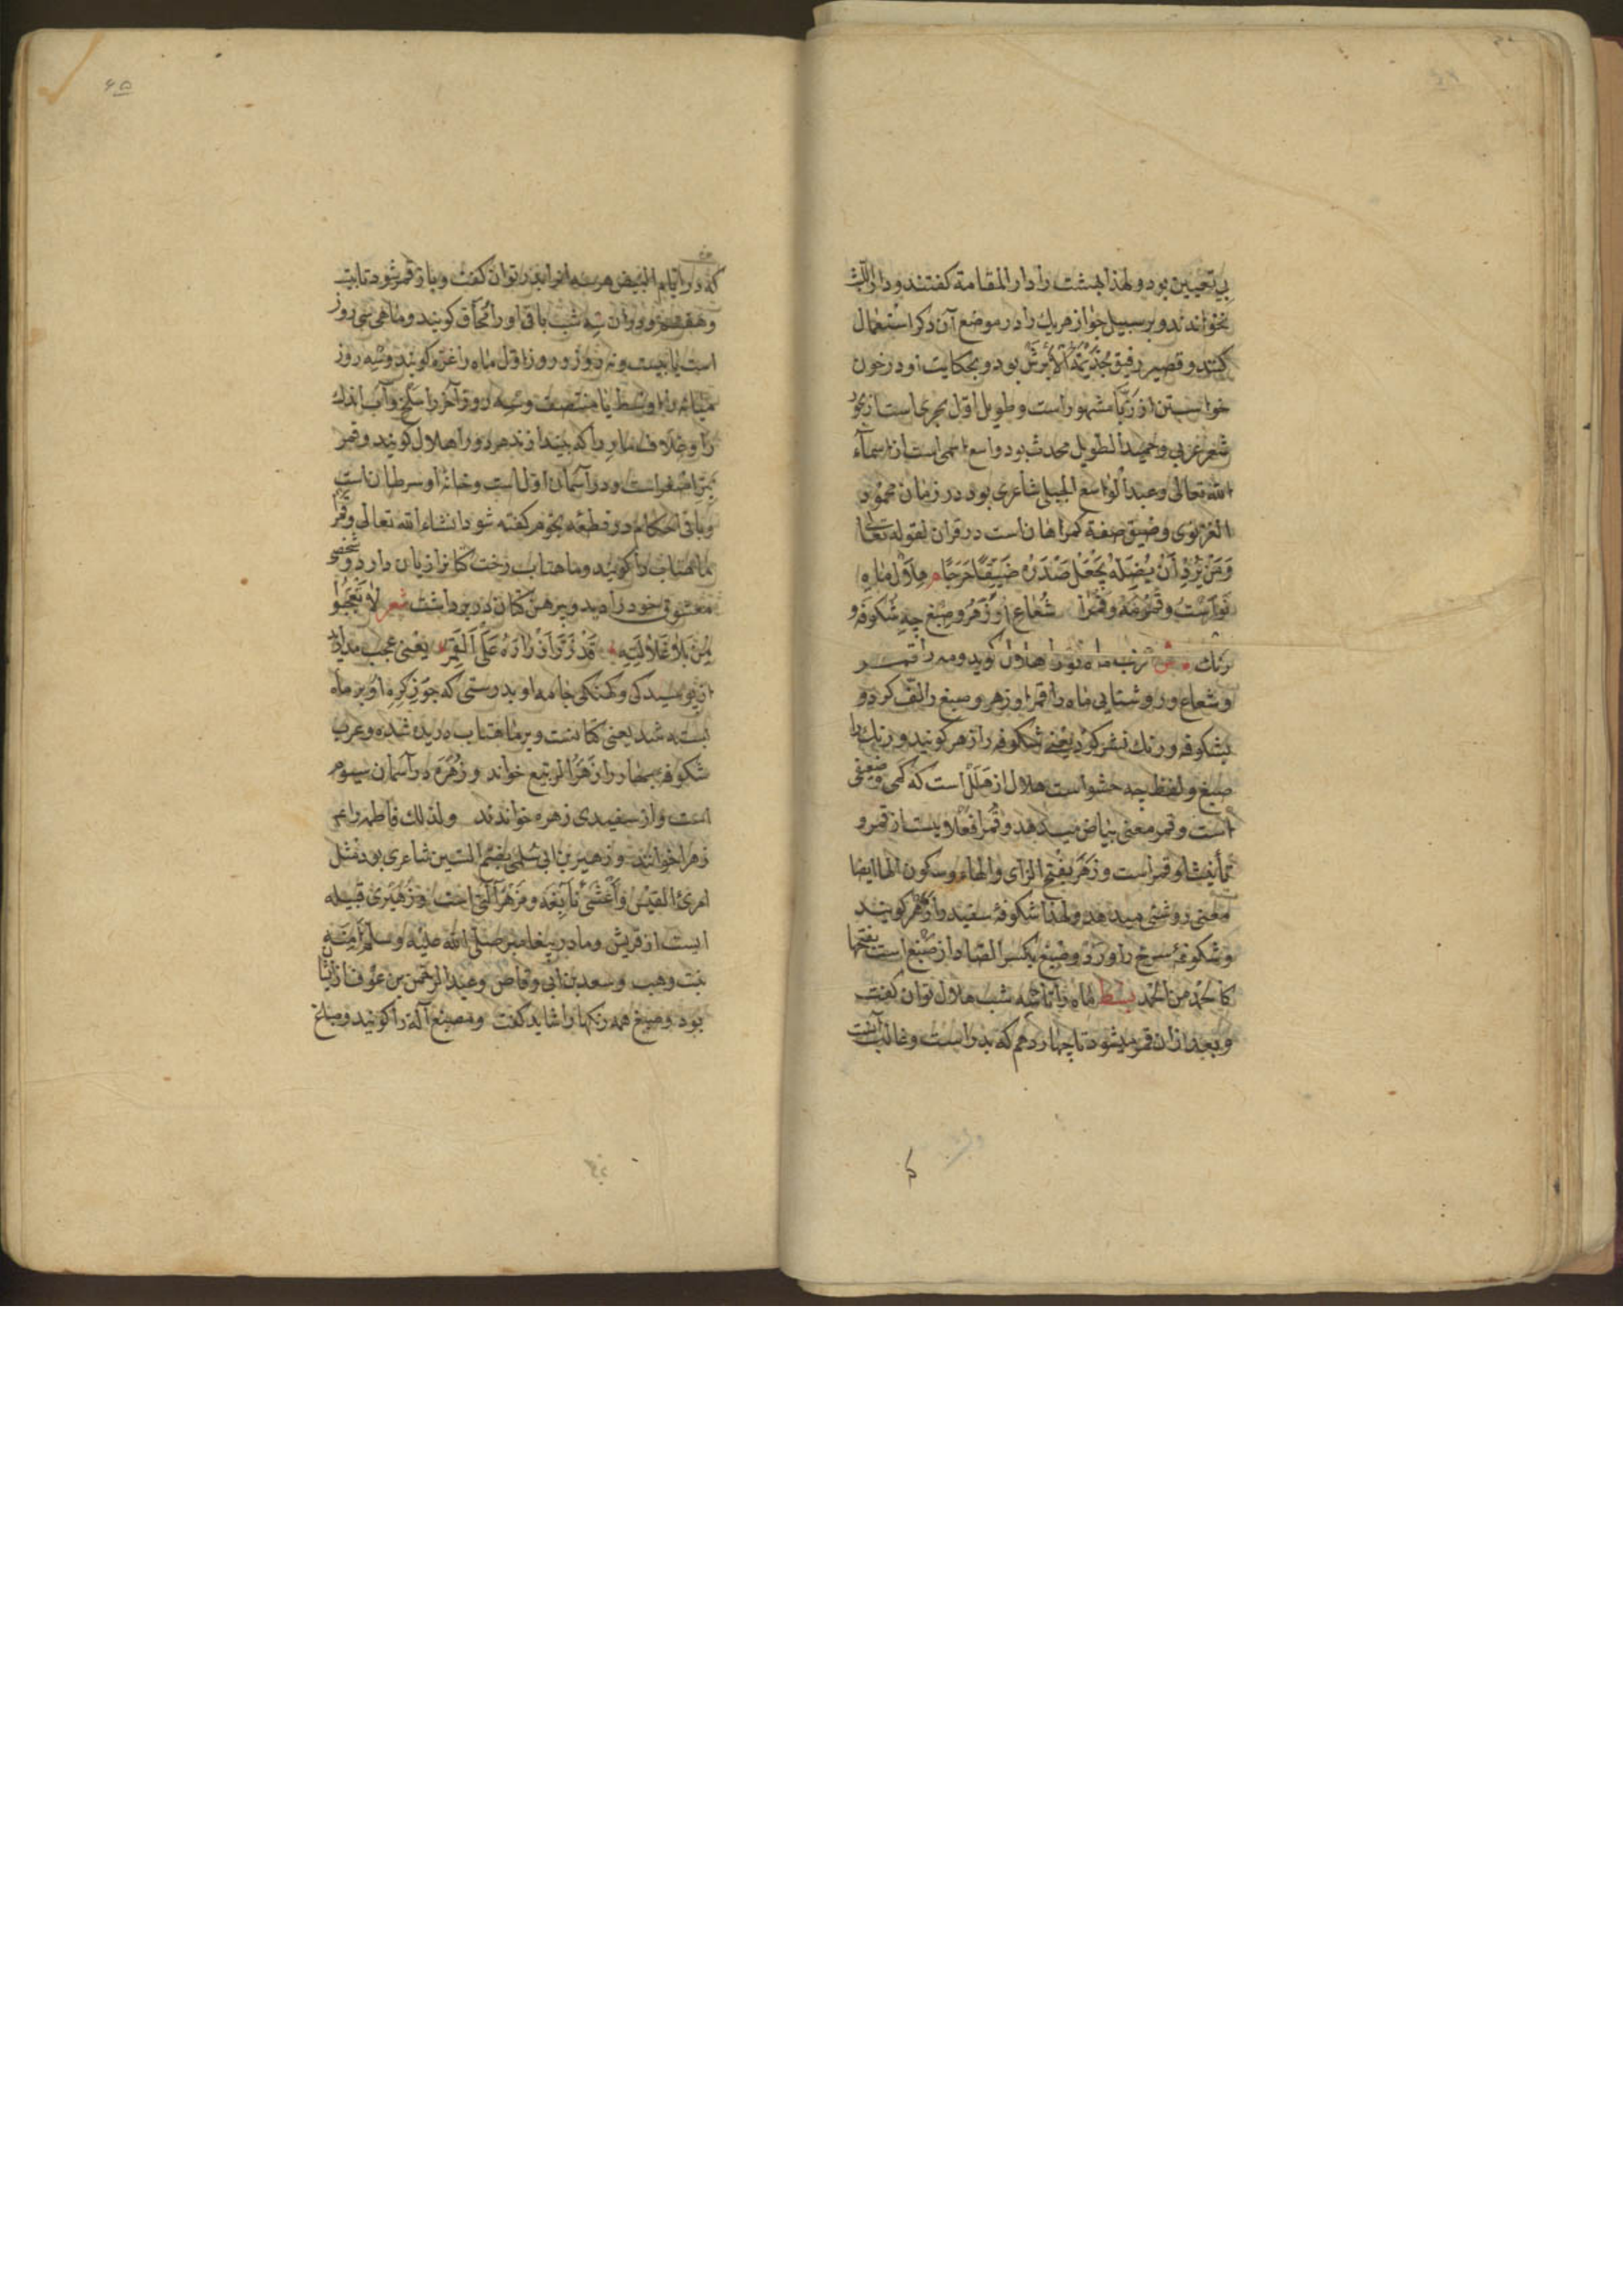 بی تعیین بود و لهذا بهشت را دار المقامة گفتند و دار اللبث
نخواندند و بر سبیل جواز هریك را در موضع آن دکر استعمال
کنند و قصیر رفیق جذیمة الأبرش بود و بحکایت او در خون
خواستن از زبّا مشهور است و طویل اوّل بحری است از بحور
شعر عربی و حمید الطویل محدث بود و واسع اسمی است از اسماء
الله تعالی و عبد الواسع الجبلی شاعری بود در زمان محمود
الغزنوی و ضیق صفة گمراهان است در قران لقوله تعالی
وَمَنْ یُرِدْ أَنْ یُضِلَّهُ یَجْعَلْ صَدْرَهُ ضَیِّقًا حَرَجًا م هِلال ماهِ
نَو است و قمر مه و قمرا شُعاعِ او زَهَر و صِبغ چهِ شُکوفه و
رنك ش ماه نورا هلال کوید و مه را قمر
و شعاع و روشنایی ماه را قمرا و زهر و صبغ را لف کرد و
بشکوفه و رنك نشر کرد یعنی شکوفه را زهر کویند و رنك را
صبغ و لفظ چه حشو است هلال از هلل است که کمی وضعفی
است و قمر معنی بیاض میدهد و قمرا فعلاویست از قمر و
تأنیث اوقمر است و زهر بفتح الزای والهاء وسکون الها ایضا
معنی روشنی میدهد ولهذا شکوفهٔ سفید را زهر کویند
و شکوفهٔ سرخ را ورد و صبغ بکسر الصاد از صَبْغ است بفتحها
کالحمد من الحمد بسط ماه را تا سه شب هلال توان کفت
و بعد ازان قمر میشود تا چهاردهم که بدر است و غالب آنست
۶۵
که در ایّام البیض هر سه را بدر توان کفت و باز قمر شود تا بیست
و هفتم و دران سه شب باقی اورا مُحاق کویند و ماهی سی روز
است یا بیست و نه روز و روز اوّل ماه را غره کویند و سه روز
میانه را اوسط یا منتصف و سه روز آخر را سلخ و آب اندك
را و غلاف مار را که بیندازند هر دو را هلال کویند و قمر
نیّر اصغر است و در آسمان اوّل است و خانهٔ او سرطان است
و باقی احکام در قطعه نجوم کفته شود انشاء الله تعالی و قمر
ماهتاب را کویند و ماهتاب رخت کتانرا زیان دارد و شخصی
معشوق خود را دید و پیرهن کتان در بر داشت شعر لا تَعْجَبُوا
مِنْ بَلا غَلالَتِهِ قَدْ زَرَّ أَزْرَارَهُ عَلَی القَمَرِ یعنی عجب مدارید
از پوسیدکی و کهنکی جامه او بدرستی که جوز کره او بر ماه
بسته شد یعنی کتانست و بر ماهتاب دریده شده و عرب
شکوفه بهار را زهر الربیع خواند و زُهَره در آسمان سیوم
است و از سفیدی زهره خواندند ولذلك فاطمه را
زهرا خوانند و زهیر بن ابی سلمی بضم السین شاعری بود مثل
امرئ القیس و أعشی و نابغه و زُهَیری قبیله
ایست از قریش و مادر پیغامبر صلّی الله علیه و سلم آمنه
بنت وهب و سعد بن ابی وقاص و عبد الرحمن بن عوف ازیشان
بود و صبغ همه رنکها را شاید کفت و مصبغ آلة را کویند و صباغ